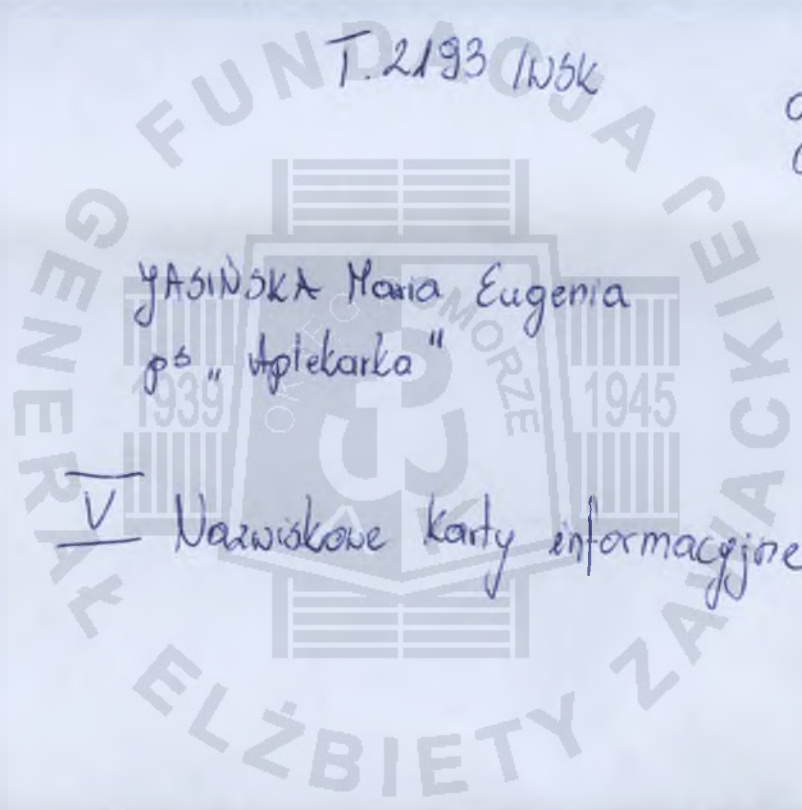 T. 2193 /WSK
JASIŃSKA Maria Eugenia
ps „Apiekarka"
V Nazwiskowe karty informacyjne
FUNDACJA GENERAŁ ELŻBIETY ZAWACKIEJ
OKRĘG POMORZE
1939
1945
AK